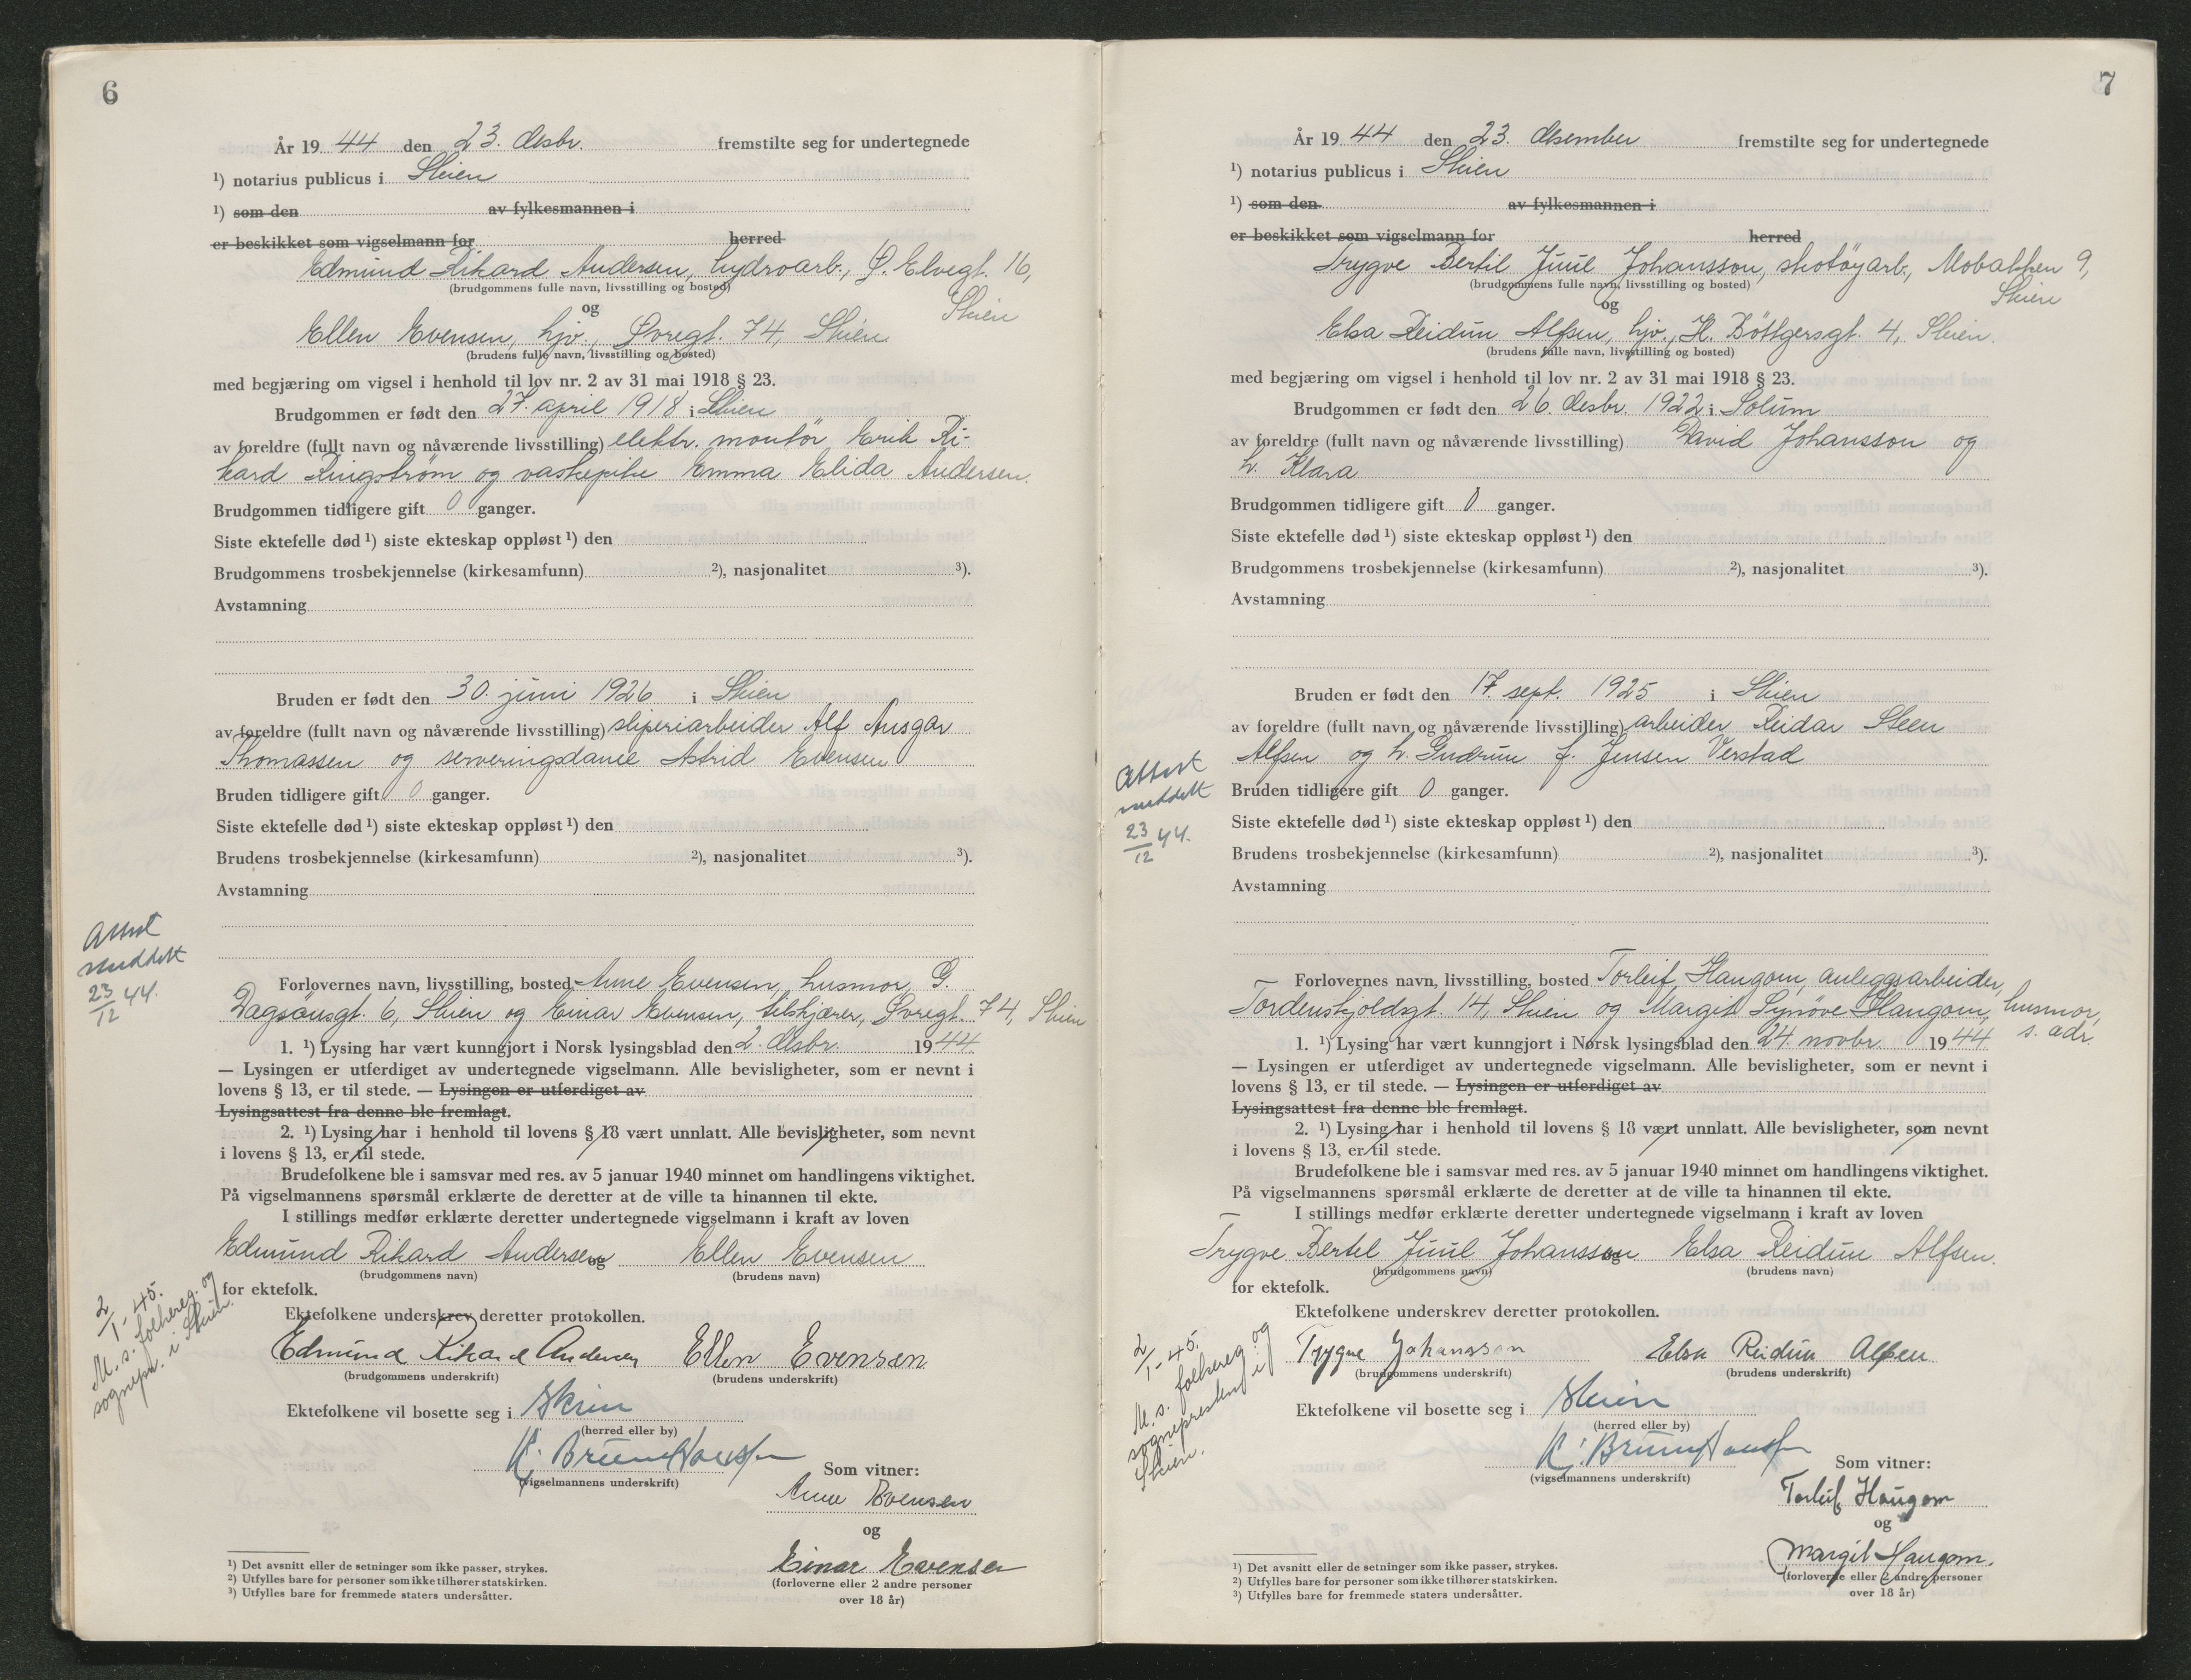 6
År 19 44 den 23. desbr. fremstilte seg for undertegnede
¹) notarius publicus i Skien
¹) som den av fylkesmannen i
er beskikket som vigselmann for herred
Edmund Rikard Andersen, hydroarb., Ø. Elvegt. 16,
(brudgommens fulle navn, livsstilling og bosted)
Skien
og
Ellen Evensen, hjv., Øvregt. 74, Skien
(brudens fulle navn, livsstilling og bosted)
med begjæring om vigsel i henhold til lov nr. 2 av 31 mai 1918 § 23.
Brudgommen er født den 27. april 1918 i Skien
av foreldre (fullt navn og nåværende livsstilling) elektr. montør Erik Ri-
kard Ringstrøm og vaskepike Emma Elida Andersen.
Brudgommen tidligere gift 0 ganger.
Siste ektefelle død ¹) siste ekteskap oppløst ¹) den
Brudgommens trosbekjennelse (kirkesamfunn) ²), nasjonalitet ³).
Avstamning
Bruden er født den 30. juni 1926 i Skien
av foreldre (fullt navn og nåværende livsstilling) sliperiarbeider Alf Ansgar
Thomassen og serveringsdame Astrid Evensen
Bruden tidligere gift 0 ganger.
Siste ektefelle død ¹) siste ekteskap oppløst ¹) den
Brudens trosbekjennelse (kirkesamfunn) ²), nasjonalitet ³).
Avstamning
Attest
meddelt
23/12 44.
Forlovernes navn, livsstilling, bosted Anne Evensen, husmor, G.
Dagsönsgt. 6, Skien og Einar Evensen, tilskjærer, Øvregt. 74, Skien
1. ¹) Lysing har vært kunngjort i Norsk lysingsblad den 2. desbr. 19 44
— Lysingen er utferdiget av undertegnede vigselmann. Alle bevisligheter, som er nevnt i
lovens § 13, er til stede. — Lysingen er utferdiget av
Lysingsattest fra denne ble fremlagt.
2. ¹) Lysing har i henhold til lovens § 18 vært unnlatt. Alle bevisligheter, som nevnt
i lovens § 13, er til stede.
Brudefolkene ble i samsvar med res. av 5 januar 1940 minnet om handlingens viktighet.
På vigselmannens spørsmål erklærte de deretter at de ville ta hinannen til ekte.
I stillings medfør erklærte deretter undertegnede vigselmann i kraft av loven
Edmund Rikard Andersen og Ellen Evensen
(brudgommens navn) (brudens navn)
for ektefolk.
2/1-45.
M. s. folkereg. og
sognepr. i Skien.
Ektefolkene underskrev deretter protokollen.
Edmund Rikard Andersen Ellen Evensen
(brudgommens underskrift) (brudens underskrift)
Ektefolkene vil bosette seg i Skien
(herred eller by)
(vigselmannens underskrift)
Som vitner:
Anne Evensen
og
Einar Evensen
(forloverne eller 2 andre personer
over 18 år)
¹) Det avsnitt eller de setninger som ikke passer, strykes.
²) Utfylles bare for personer som ikke tilhører statskirken.
³) Utfylles bare for fremmede staters undersåtter.
7
År 19 44 den 23. desember fremstilte seg for undertegnede
¹) notarius publicus i Skien
¹) som den av fylkesmannen i
er beskikket som vigselmann for herred
Trygve Bertil Juul Johansson, skotøyarb., Mobakken 9,
(brudgommens fulle navn, livsstilling og bosted)
Skien
og
Elsa Reidun Alfsen, hjv., H. Böttgersgt. 4, Skien.
(brudens fulle navn, livsstilling og bosted)
med begjæring om vigsel i henhold til lov nr. 2 av 31 mai 1918 § 23.
Brudgommen er født den 26. desbr. 1922 i Solum
av foreldre (fullt navn og nåværende livsstilling) David Johansson og
h. Klara
Brudgommen tidligere gift 0 ganger.
Siste ektefelle død ¹) siste ekteskap oppløst ¹) den
Brudgommens trosbekjennelse (kirkesamfunn) ²), nasjonalitet ³).
Avstamning
Bruden er født den 17. sept. 1925 i Skien
av foreldre (fullt navn og nåværende livsstilling) arbeider Reidar Steen
Alfsen og h. Gudrun f. Jensen Verstad
Attest
meddelt
23/12 44.
Bruden tidligere gift 0 ganger.
Siste ektefelle død ¹) siste ekteskap oppløst ¹) den
Brudens trosbekjennelse (kirkesamfunn) ²), nasjonalitet ³).
Avstamning
Forlovernes navn, livsstilling, bosted Torleif Haugom, anleggsarbeider,
Tordenskjoldsgt. 14, Skien og Margit Synöve Haugom, husmor,
s. adr.
1. ¹) Lysing har vært kunngjort i Norsk lysingsblad den 24 novbr. 19 44
— Lysingen er utferdiget av undertegnede vigselmann. Alle bevisligheter, som er nevnt i
lovens § 13, er til stede. — Lysingen er utferdiget av
Lysingsattest fra denne ble fremlagt.
2. ¹) Lysing har i henhold til lovens § 18 vært unnlatt. Alle bevisligheter, som nevnt
i lovens § 13, er til stede.
Brudefolkene ble i samsvar med res. av 5 januar 1940 minnet om handlingens viktighet.
På vigselmannens spørsmål erklærte de deretter at de ville ta hinannen til ekte.
I stillings medfør erklærte deretter undertegnede vigselmann i kraft av loven
Trygve Bertel Juul Johansson og Elsa Reidun Alfsen.
(brudgommens navn) (brudens navn)
for ektefolk.
2/1-45.
M. s. folkereg. og
sognepresten i
Skien.
Ektefolkene underskrev deretter protokollen.
Trygve Johansson Elsa Reidun Alfsen
(brudgommens underskrift) (brudens underskrift)
Ektefolkene vil bosette seg i Skien
(herred eller by)
(vigselmannens underskrift)
Som vitner:
Torleif Haugom
og
Margit Haugom.
(forloverne eller 2 andre personer
over 18 år)
¹) Det avsnitt eller de setninger som ikke passer, strykes.
²) Utfylles bare for personer som ikke tilhører statskirken.
³) Utfylles bare for fremmede staters undersåtter.